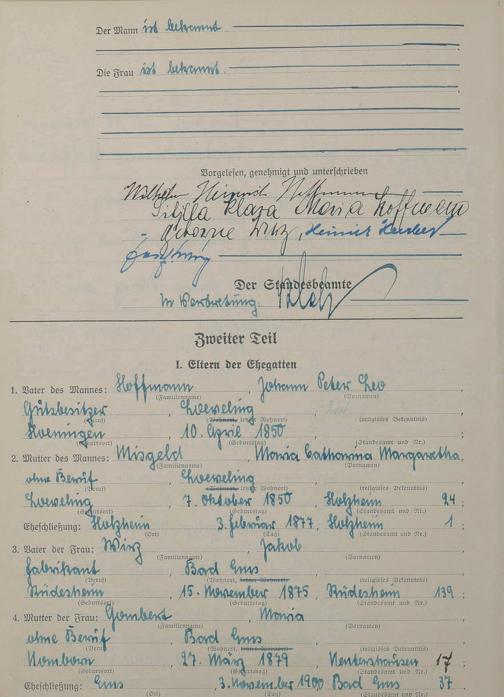 Der Mann ist bekannt.
Die Frau ist bekannt.
Vorgelesen, genehmigt und unterschrieben
Wilhelm Heinrich Hoffmann
Sibilla Klara Maria Hoffmann
geborene Wirz, Heinrich
Der Standesbeamte
In Vertretung:
Zweiter Teil
I. Eltern der Ehegatten
1. Vater des Mannes: Hoffmann, Johann Peter Leo
(Familienname) (Vornamen)
Gutsbesitzer Loeveling
(Beruf) (Wohnort, letzter Wohnort) (religiöses Bekenntnis)
Hoeningen, 10. April 1850
(Geburtsort) (Geburtstag) (Standesamt und Nr.)
2. Mutter des Mannes: Misgeld Maria Catharina Margaretha,
(Familienname) (Vornamen)
ohne Beruf Loeveling
(Beruf) (Wohnort, letzter Wohnort) (religiöses Bekenntnis)
Loeveling, 7. Oktober 1850, Holzheim 24;
(Geburtsort) (Geburtstag) (Standesamt und Nr.)
Eheschließung: Holzheim 3. Februar 1877, Holzheim 1;
(Ort) (Tag) (Standesamt und Nr.)
3. Vater der Frau: Wirz, Jakob
(Familienname) (Vornamen)
Fabrikant, Bad Ems
(Beruf) (Wohnort, letzter Wohnort) (religiöses Bekenntnis)
Rüdesheim, 15. November 1875, Rüdesheim 139;
(Geburtsort) (Geburtstag) (Standesamt und Nr.)
4. Mutter der Frau: Gombert, Maria
(Familienname) (Vornamen)
ohne Beruf, Bad Ems
(Beruf) (Wohnort, letzter Wohnort) (religiöses Bekenntnis)
Nomborn, 27. März 1879 Nentershausen 17;
(Geburtsort) (Geburtstag) (Standesamt und Nr.)
Eheschließung: Ems 3. November 1900 Bad Ems 37
(Ort) (Tag) (Standesamt und Nr.)